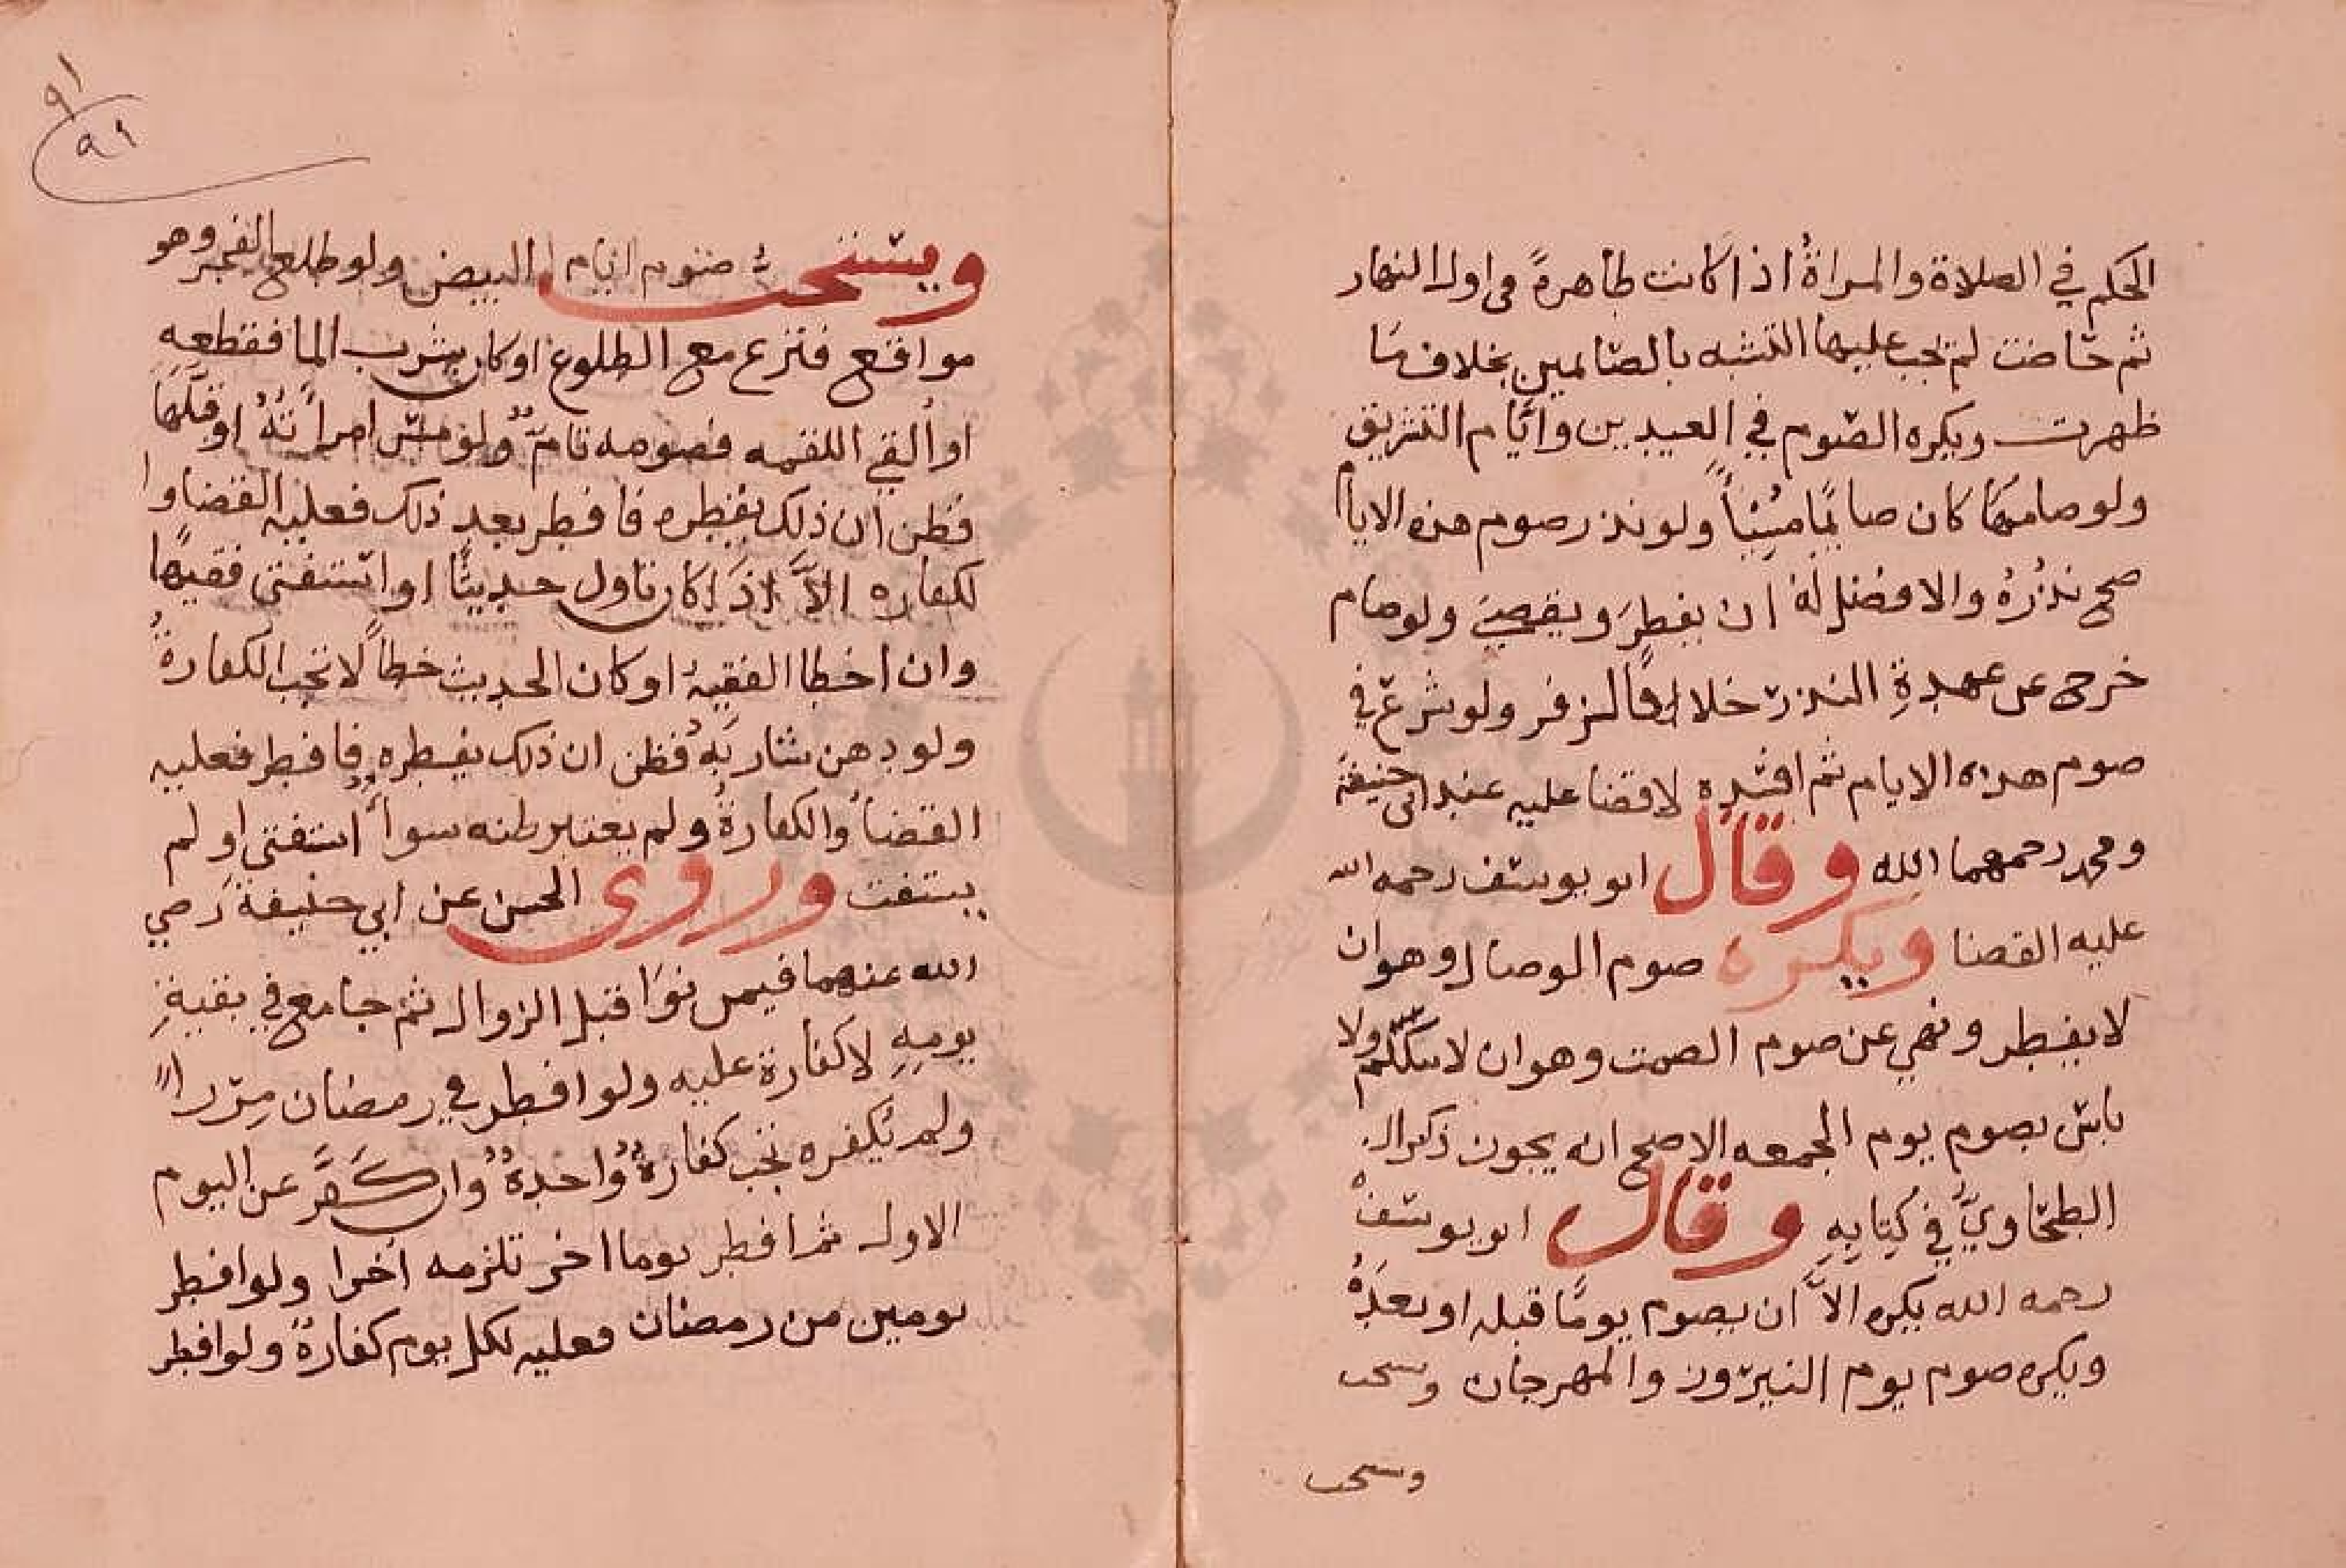 الحكم في الصلاة والمراةُ اذا كانت طاهرةً في اول النهار
ثم حاضت لم يجب عليها التشبه بالصائمين بخلاف ما
ظهرت ويكره الصوم في العيدين وايّام التشريق
ولو صامها كان صائمًا مسِيئاً ولو نذر صوم هذه الايام
صح نذرُهُ والافضل لهُ ان يفطرَ ويقضيَ ولو صام
خرج عن عهدةِ النذر خلافًا لزفر ولو شرع في
صوم هذه الايام ثم افسده لا قضا عليه عند ابي حنيفة
ومحمد رحمهما الله وقال ابو يوسف رحمه الله
عليه القضا ويكره صوم الوصال وهو ان
لا يفطر ونهي عن صوم الصمت وهو ان لا يتكلم ولا
باس بصوم يوم الجمعه الاصح انه يجوز ذكرا
الطحاويُّ في كِتابِهِ وقال ابو يوسفْ
رحمه الله يكره الاَّ ان يصوم يومًا قبله او بعدَهُ
ويكره صوم يوم النيروز والمهرجان ويستحب
ويستحب
٩١
٩٢
ويستحب صوم ايام البيض ولو طلع الفجر وهو
مواقع فنزع مع الطلوع او كان يشرب الما فقطعهِ
او القي اللقمه فصومه تامٌ ولو مس امراتهُ او قبّلها
فظن ان ذلك يفطره فافطر بعد ذلك فعليه القضا وا
لكفاره الاَّ اذَا كان تاول حديثًا او استفتى فقيهًا
وان اخطا الفقيهُ او كان الحديث خطاً لا تجب الكفارةُ
ولو دهن شاربَهُ فظن ان ذلك يفطره فافطر فعليه
القضاُ والكفارةُ ولم يعتبر ظنه سواً استفتى او لم
يستفت وروى الحسن عن ابي حنيفة رضي
الله عنهما فيمن نوَا قبل الزوال ثم جامع في بقيةِ
يومِهِ لا كفارة عليه ولو افطر في رمضان مِرَراً
ولم يُكفره تجب كفارةٌ واحدةٌ وان كَفَّرَ عن اليوم
الاول ثم افطر يوما اخر تلزمه اخرا ولو افطر
يومين من رمضان فعليه لكل يوم كفارةٌ ولو افطر